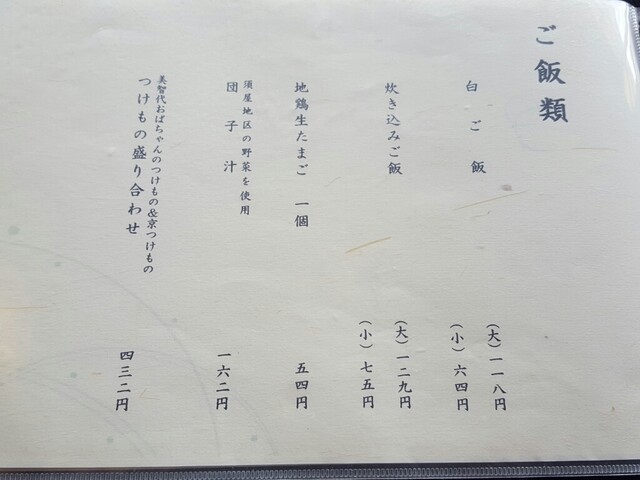 ご飯類
白ご飯
(大)一一八円
(小)六四円
炊き込みご飯
(大)一二九円
(小)七五円
地鶏生たまご 一個
五四円
須屋地区の野菜を使用
団子汁
一六二円
美智代おばちゃんのつけもの&京つけもの
つけもの盛り合わせ
四三二円